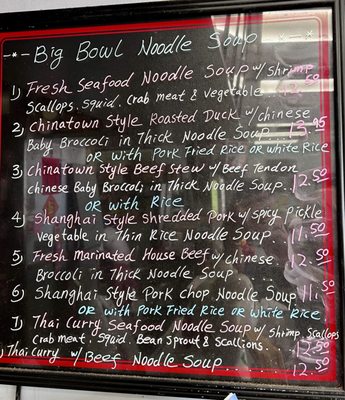 -*- Big Bowl Noodle Soup -*-
1) Fresh Seafood Noodle Soup w/ shrimp
Scallops. squid. Crab meat & vegetable .50
2) Chinatown Style Roasted Duck w/ chinese
Baby Broccoli in Thick Noodle Soup... 13.95
OR with Pork Fried Rice OR white Rice
3) Chinatown Style Beef Stew w/ Beef Tendon
chinese Baby Broccoli in Thick Noodle Soup.. 12.50
OR with Rice
4) Shanghai Style Shredded Pork w/ spicy Pickle
Vegetable in Thin Rice Noodle Soup... 11.50
5) Fresh Marinated House Beef w/ chinese 12.50
Broccoli in Thick Noodle Soup ....
6) Shanghai Style Pork Chop Noodle Soup 11.50
OR with Pork Fried Rice OR White Rice
7) Thai Curry Seafood Noodle Soup w/ Shrimp Scallops
Crab meat. Squid. Bean Sprout & Scallions. 12.50
) Thai Curry w/ Beef Noodle Soup........ 12.50